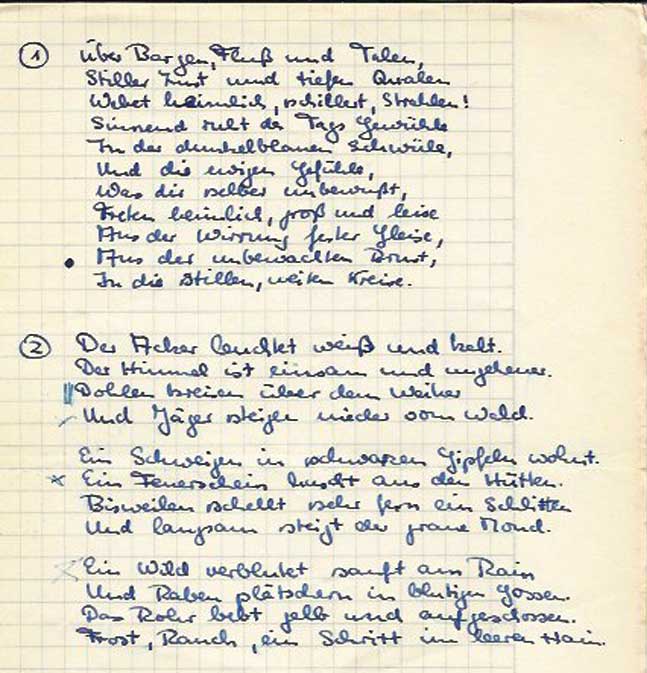 ① Über Bergen, Fluß und Talen,
Stiller Lust und tiefen Qualen
Webet heimlich, schillert, Strahlen!
Sinnend ruht des Tags Gewühle
In der dunkelblauen Schwüle,
Und die ewigen Gefühle,
Was dir selber unbewußt,
Treten heimlich, groß und leise
Aus der Wirrung fester Gleise,
Aus der unbewachten Brust,
In die stillen, weiten Kreise.
② Der Acker leuchtet weiß und kalt.
Der Himmel ist einsam und ungeheuer.
Dohlen kreisen über dem Weiher
Und Jäger steigen nieder vom Wald.
Ein Schweigen in schwarzen Gipfeln wohnt.
Ein Feuerschein huscht aus den Hütten.
Bisweilen schellt sehr fern ein Schlitten
Und langsam steigt der graue Mond.
Ein Wild verblutet sanft am Rain
Und Raben plätschern in blutigen Gossen.
Das Rohr bebt gelb und aufgeschossen.
Frost, Rauch, ein Schritt im leeren Hain.